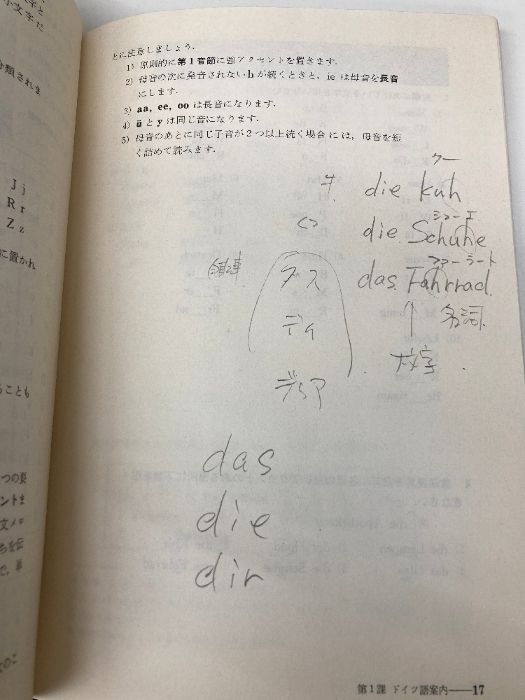 とに注意しましょう.
1) 原則的に第1音節に強アクセントを置きます.
2) 母音の次に発音されない h が続くときと, ie は母音を長音
にします.
3) aa, ee, oo は長音になります.
4) ü と y は同じ音になります.
5) 母音のあとに同じ子音が2つ以上続く場合には, 母音を短
く詰めて読みます.
クー
牛 die kuh
シューエ
くつ die Schuhe
ファーラート
das Fahrrad.
ダス
ディ
名詞
大文字
das
die
dir
J j
R r
Z z
に置かれ
ることも
第1課 ドイツ語案内――17